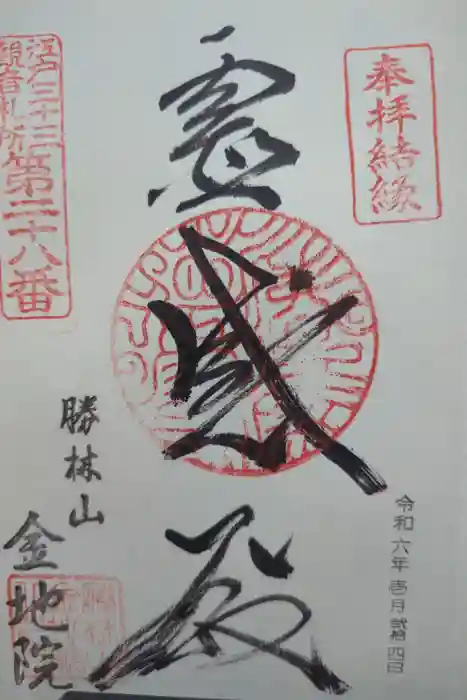 奉拝結縁
令和六年壱月貮拾四日
霊感殿
江戸三十三
観音札所
第二十八番
勝林山
金地院